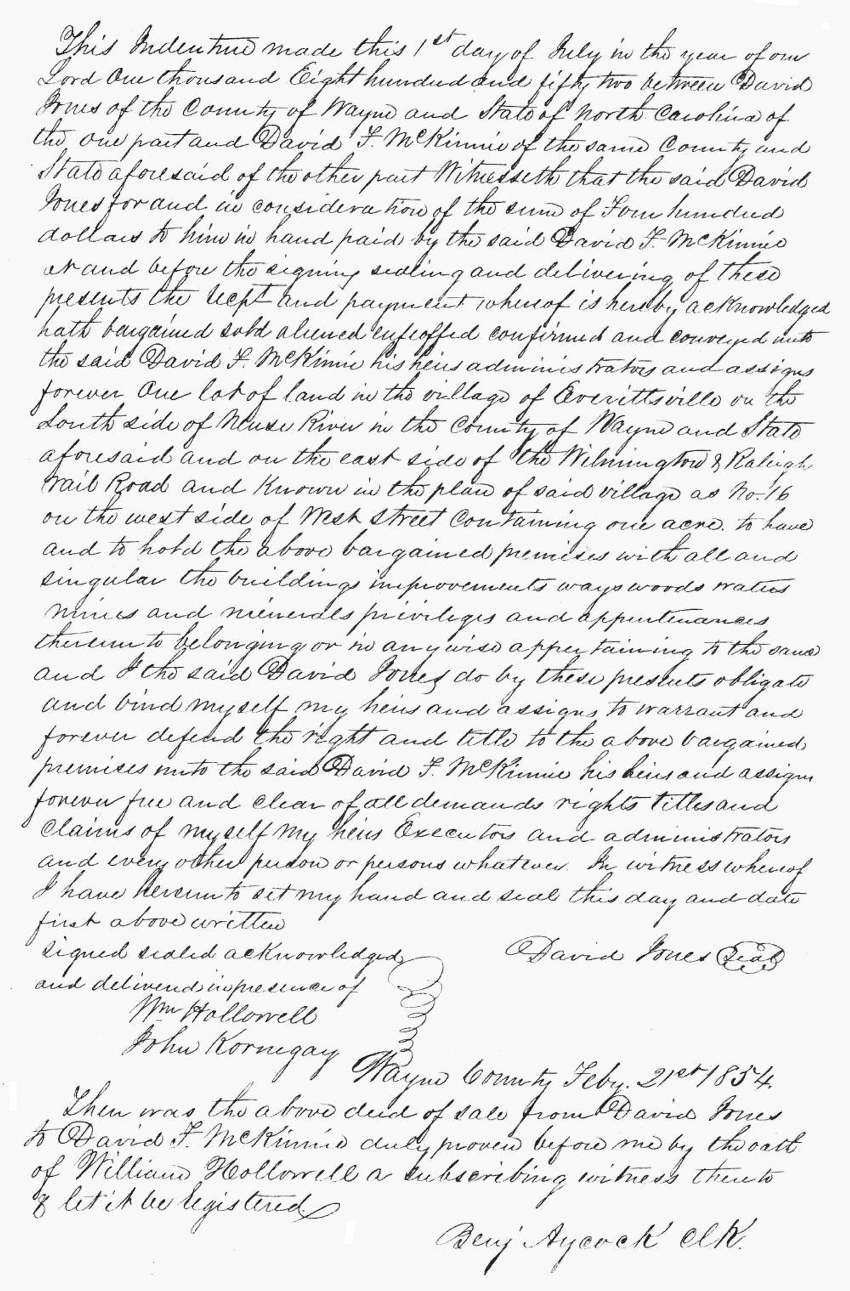 This Indenture made this 1st day of July in the year of our
Lord One thousand Eight hundred and fifty two between David
Jones of the County of Wayne and State of North Carolina of
the one part and David F. McKinnie of the same County and
State aforesaid of the other part Witnesseth that the said David
Jones for and in consideration of the sum of Four hundred
dollars to him in hand paid by the said David F. McKinnie
at and before the signing sealing and delivering of these
presents the recpt and payment whereof is hereby acknowledged
hath bargained sold aliened enfeoffed confirmed and conveyed unto
the said David F. McKinnie his heirs administrators and assigns
forever One lot of land in the village of Everittsville on the
South side of Neuse River in the County of Wayne and State
aforesaid and on the east side of the Wilmington & Raleigh
Rail Road and Known in the plan of said village as No. 16
on the west side of West Street containing one acre. to have
and to hold the above bargained premises with all and
singular the buildings improvements ways woods waters
mines and minerals privileges and appurtenances
thereunto belonging or in any wise appertaining to the same
and I the said David Jones do by these presents obligate
and bind myself my heirs and assigns to warrant and
forever defend the right and title to the above bargained
premises unto the said David F. McKinnie his heirs and assigns
forever free and clear of all demands rights titles and
claims of myself my heirs Executors and administrators
and every other person or persons whatever. In witness whereof
I have hereunto set my hand and seal this day and date
first above written
signed sealed acknowledged David Jones Seal
and delivered in presence of
Wm Hollowell
John Kornegay
Wayne County Feby. 21st 1854.
Then was the above deed of sale from David Jones
to David F. McKinnie duly proven before me by the oath
of William Hollowell a subscribing witness thereto
& let it be registered
Benj Aycock Clk.